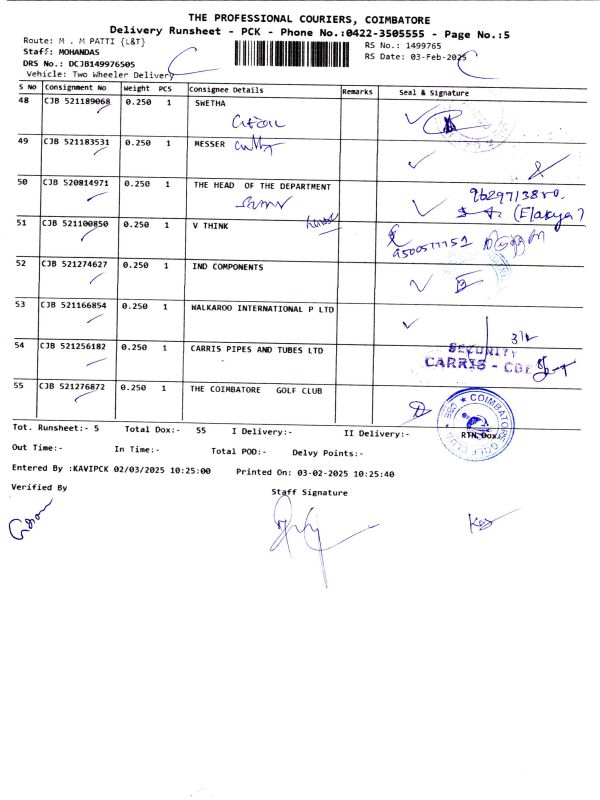 THE PROFESSIONAL COURIERS, COIMBATORE
Delivery Runsheet - PCK - Phone No.:0422-3505555 - Page No.:5
Route: M . M PATTI {L&T}
RS No.: 1499765
Staff: MOHANDAS
RS Date: 03-Feb-2025
DRS No.: DCJB149976505
Vehicle: Two Wheeler Delivery
S No Consignment No Weight PCS Consignee Details Remarks Seal & Signature
48 CJB 521189068 0.250 1 SWETHA
49 CJB 521183531 0.250 1 MESSER
50 CJB 520814971 0.250 1 THE HEAD OF THE DEPARTMENT
9629713880.
(Elakya)
51 CJB 521100850 0.250 1 V THINK
52 CJB 521274627 0.250 1 IND COMPONENTS
53 CJB 521166854 0.250 1 WALKAROO INTERNATIONAL P LTD
54 CJB 521256182 0.250 1 CARRIS PIPES AND TUBES LTD
SECURITY
CARRIS - CBE
55 CJB 521276872 0.250 1 THE COIMBATORE GOLF CLUB
COIMBATORE GOLF CLUB
Tot. Runsheet:- 5 Total Dox:- 55 I Delivery:- II Delivery:- RTN Dox:-
Out Time:- In Time:- Total POD:- Delvy Points:-
Entered By :KAVIPCK 02/03/2025 10:25:00 Printed On: 03-02-2025 10:25:40
Verified By
Staff Signature